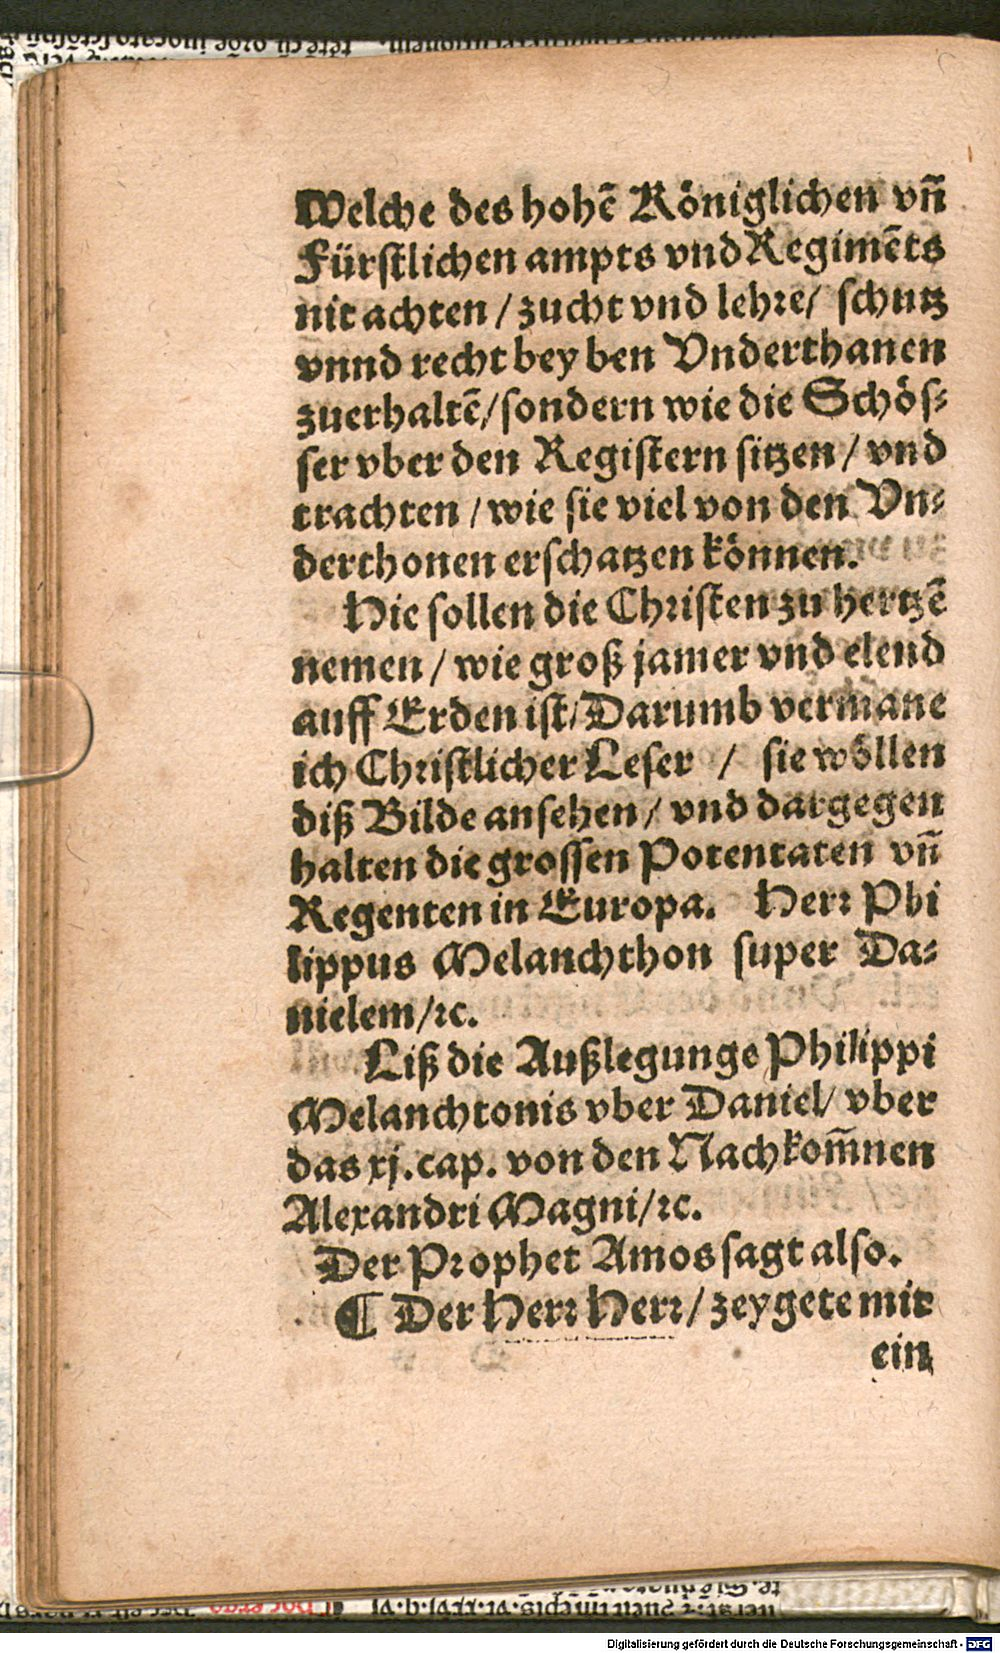 Welche des hohē Königlichen vñ
Fürstlichen ampts vnd Regimēts
nit achten / zucht vnd lehre/ schutz
vnnd recht bey ben Vnderthanen
zuerhaltē/sondern wie die Schös-
ser vber den Registern sitzen / vnd
trachten / wie sie viel von den Vn-
derthonen erschatzen können.
Hie sollen die Christen zu hertzē
nemen / wie groß jamer vnd elend
auff Erden ist/Darumb vermane
ich Christlicher Leser / sie wöllen
diß Bilde ansehen/ vnd dargegen
halten die grossen Potentaten vñ
Regenten in Europa. Herr Phi
lippus Melanchthon super Da-
nielem/ꝛc.
Liß die Außlegunge Philippi
Melanchtonis vber Daniel/ vber
das xj. cap. von den Nachkom̃nen
Alexandri Magni/ꝛc.
Der Prophet Amos sagt also.
¶ Der Herr Herr/ zeygete mit
ein
Digitalisierung gefördert durch die Deutsche Forschungsgemeinschaft - DFG